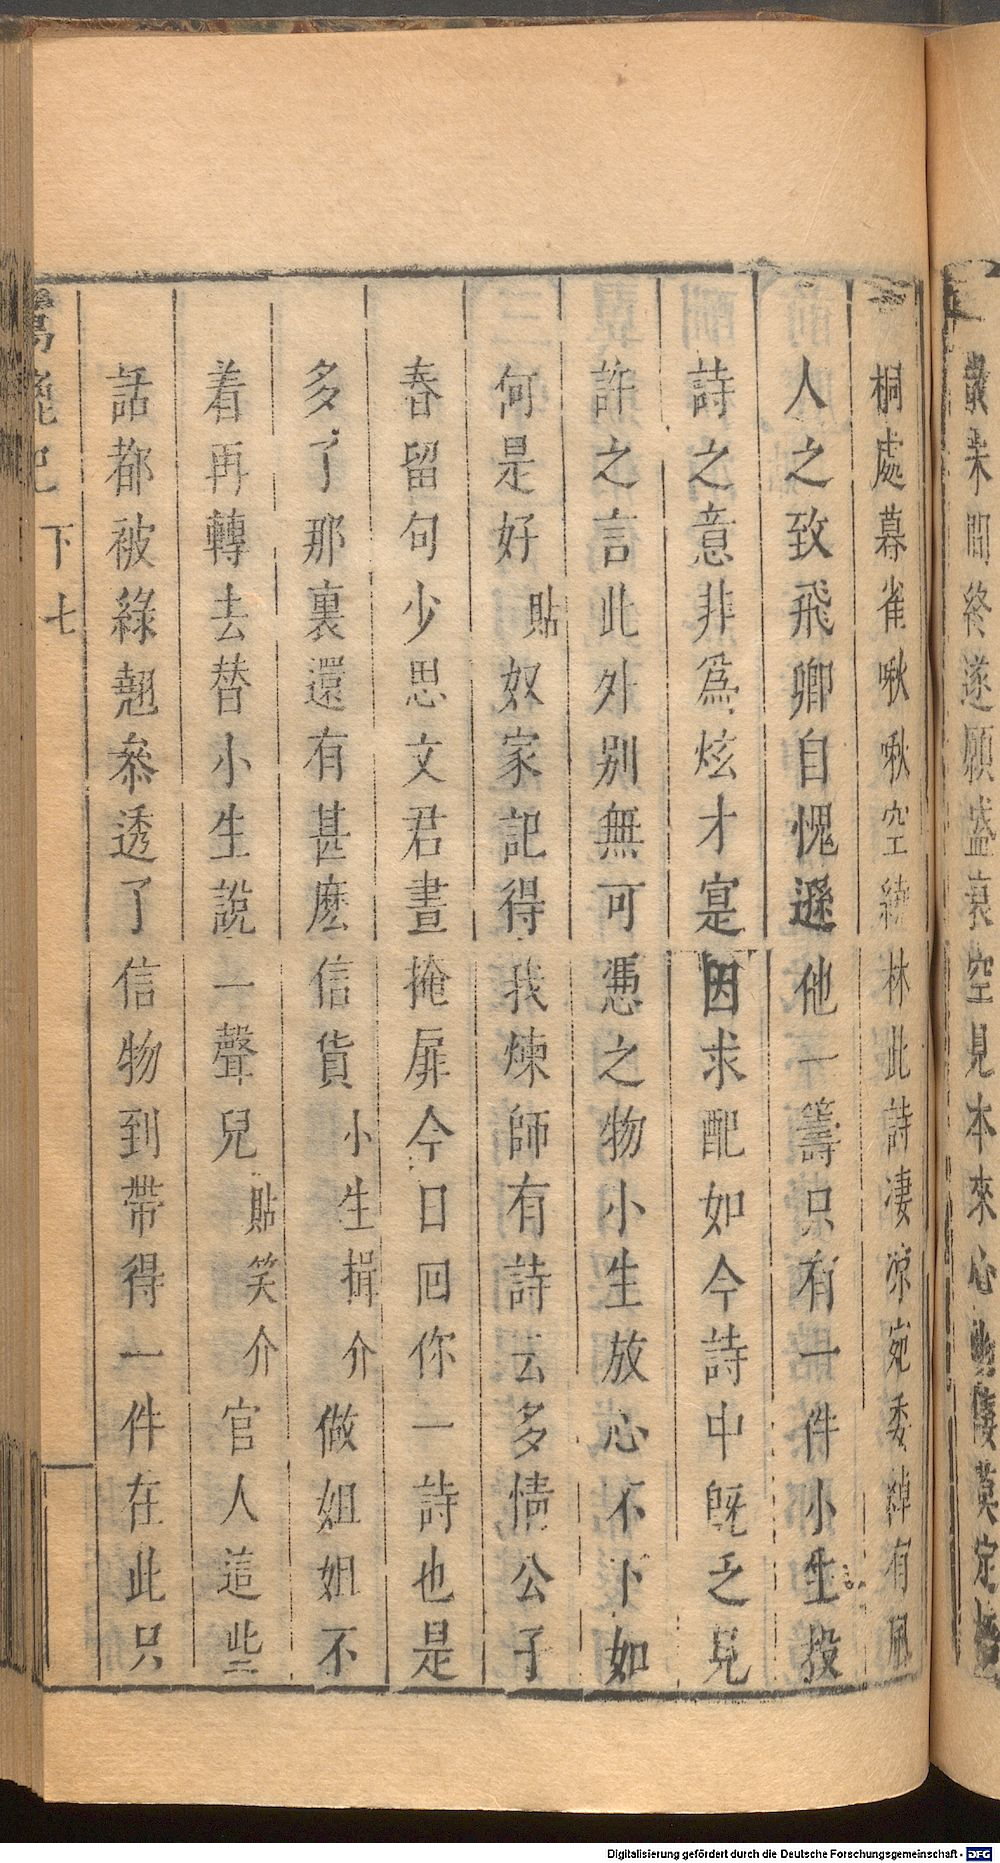 散未問終遂願盛衰空見本來心
莫定
桐處暮雀啾啾空繞林此詩凄凉宛委綽有風
人之致飛卿自愧遜他一籌只有一件小生投
詩之意非爲炫才寔因求配如今詩中旣乏見
許之言此外别無可憑之物小生放心不下如
何是好貼奴家記得我煉師有詩云多情公子
春留句少思文君晝掩扉今日回你一詩也是
多了那裏還有甚麽信貨小生揖介做姐姐不
着再轉去替小生說一聲兒貼笑介官人這些
話都被綠翹叅透了信物到帶得一件在此只
鸞鎞記 下 七
Digitalisierung gefördert durch die Deutsche Forschungsgemeinschaft - DFG